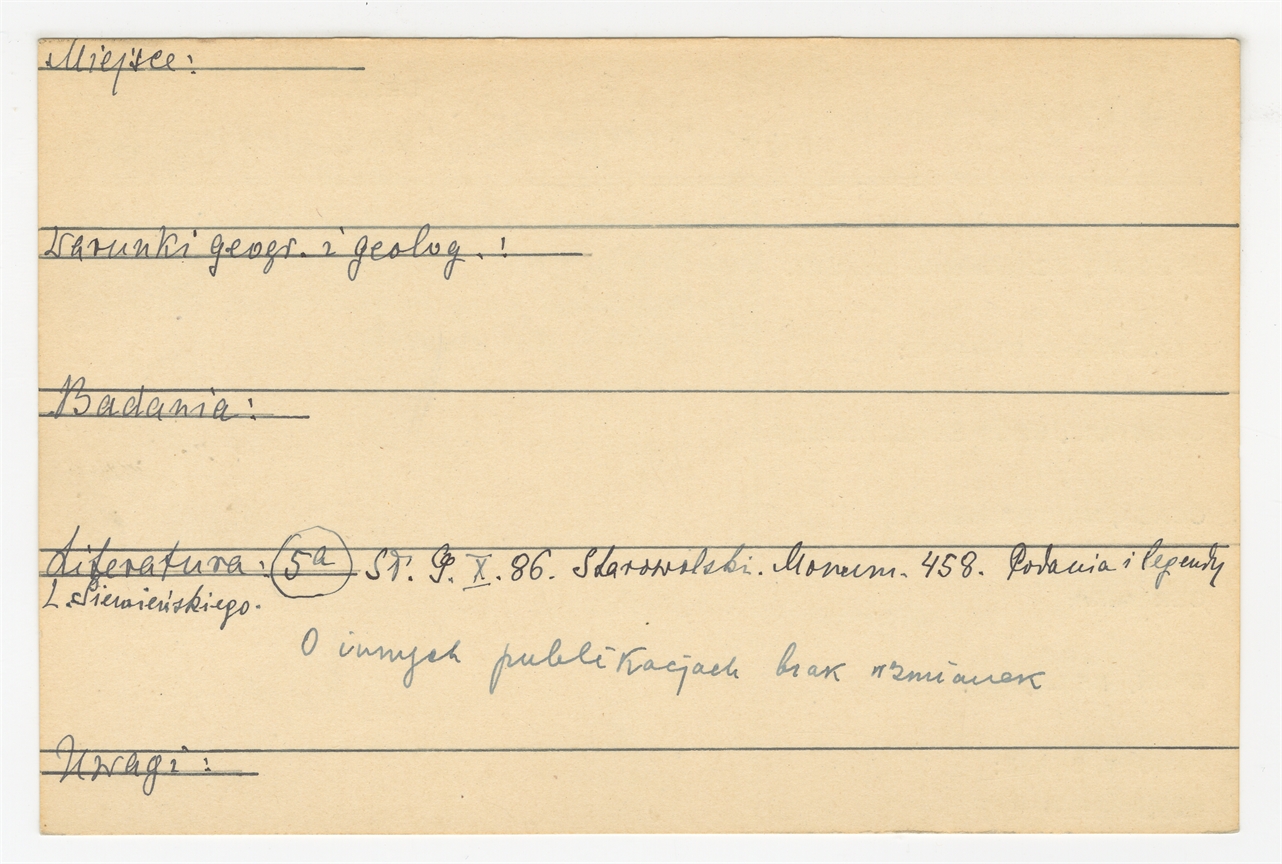 Miejsce:
Warunki geogr. i geolog.:
Badania:
Literatura: 5a Sł. G. X. 86. Starowolski. Monum. 458. Podania i legendy
L. Siemieńskiego.
O innych publikacjach brak wzmianek
Uwagi: